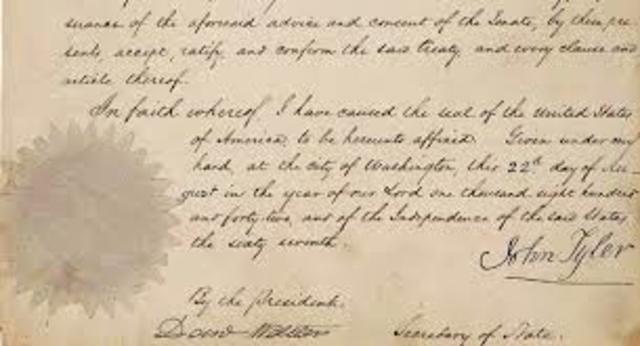 suance of the aforesaid advice and consent of the Senate, by these pre-
sents, accept, ratify, and confirm the said treaty and every clause and
article thereof.
In faith whereof, I have caused the seal of the United States
of America, to be hereunto affixed. Given under my
hand, at the city of Washington, this 22d day of Au-
gust in the year of our Lord one thousand eight hundred
and forty-two, and of the Independence of the said States
the sixty seventh.
John Tyler
By the President.
Secretary of State.